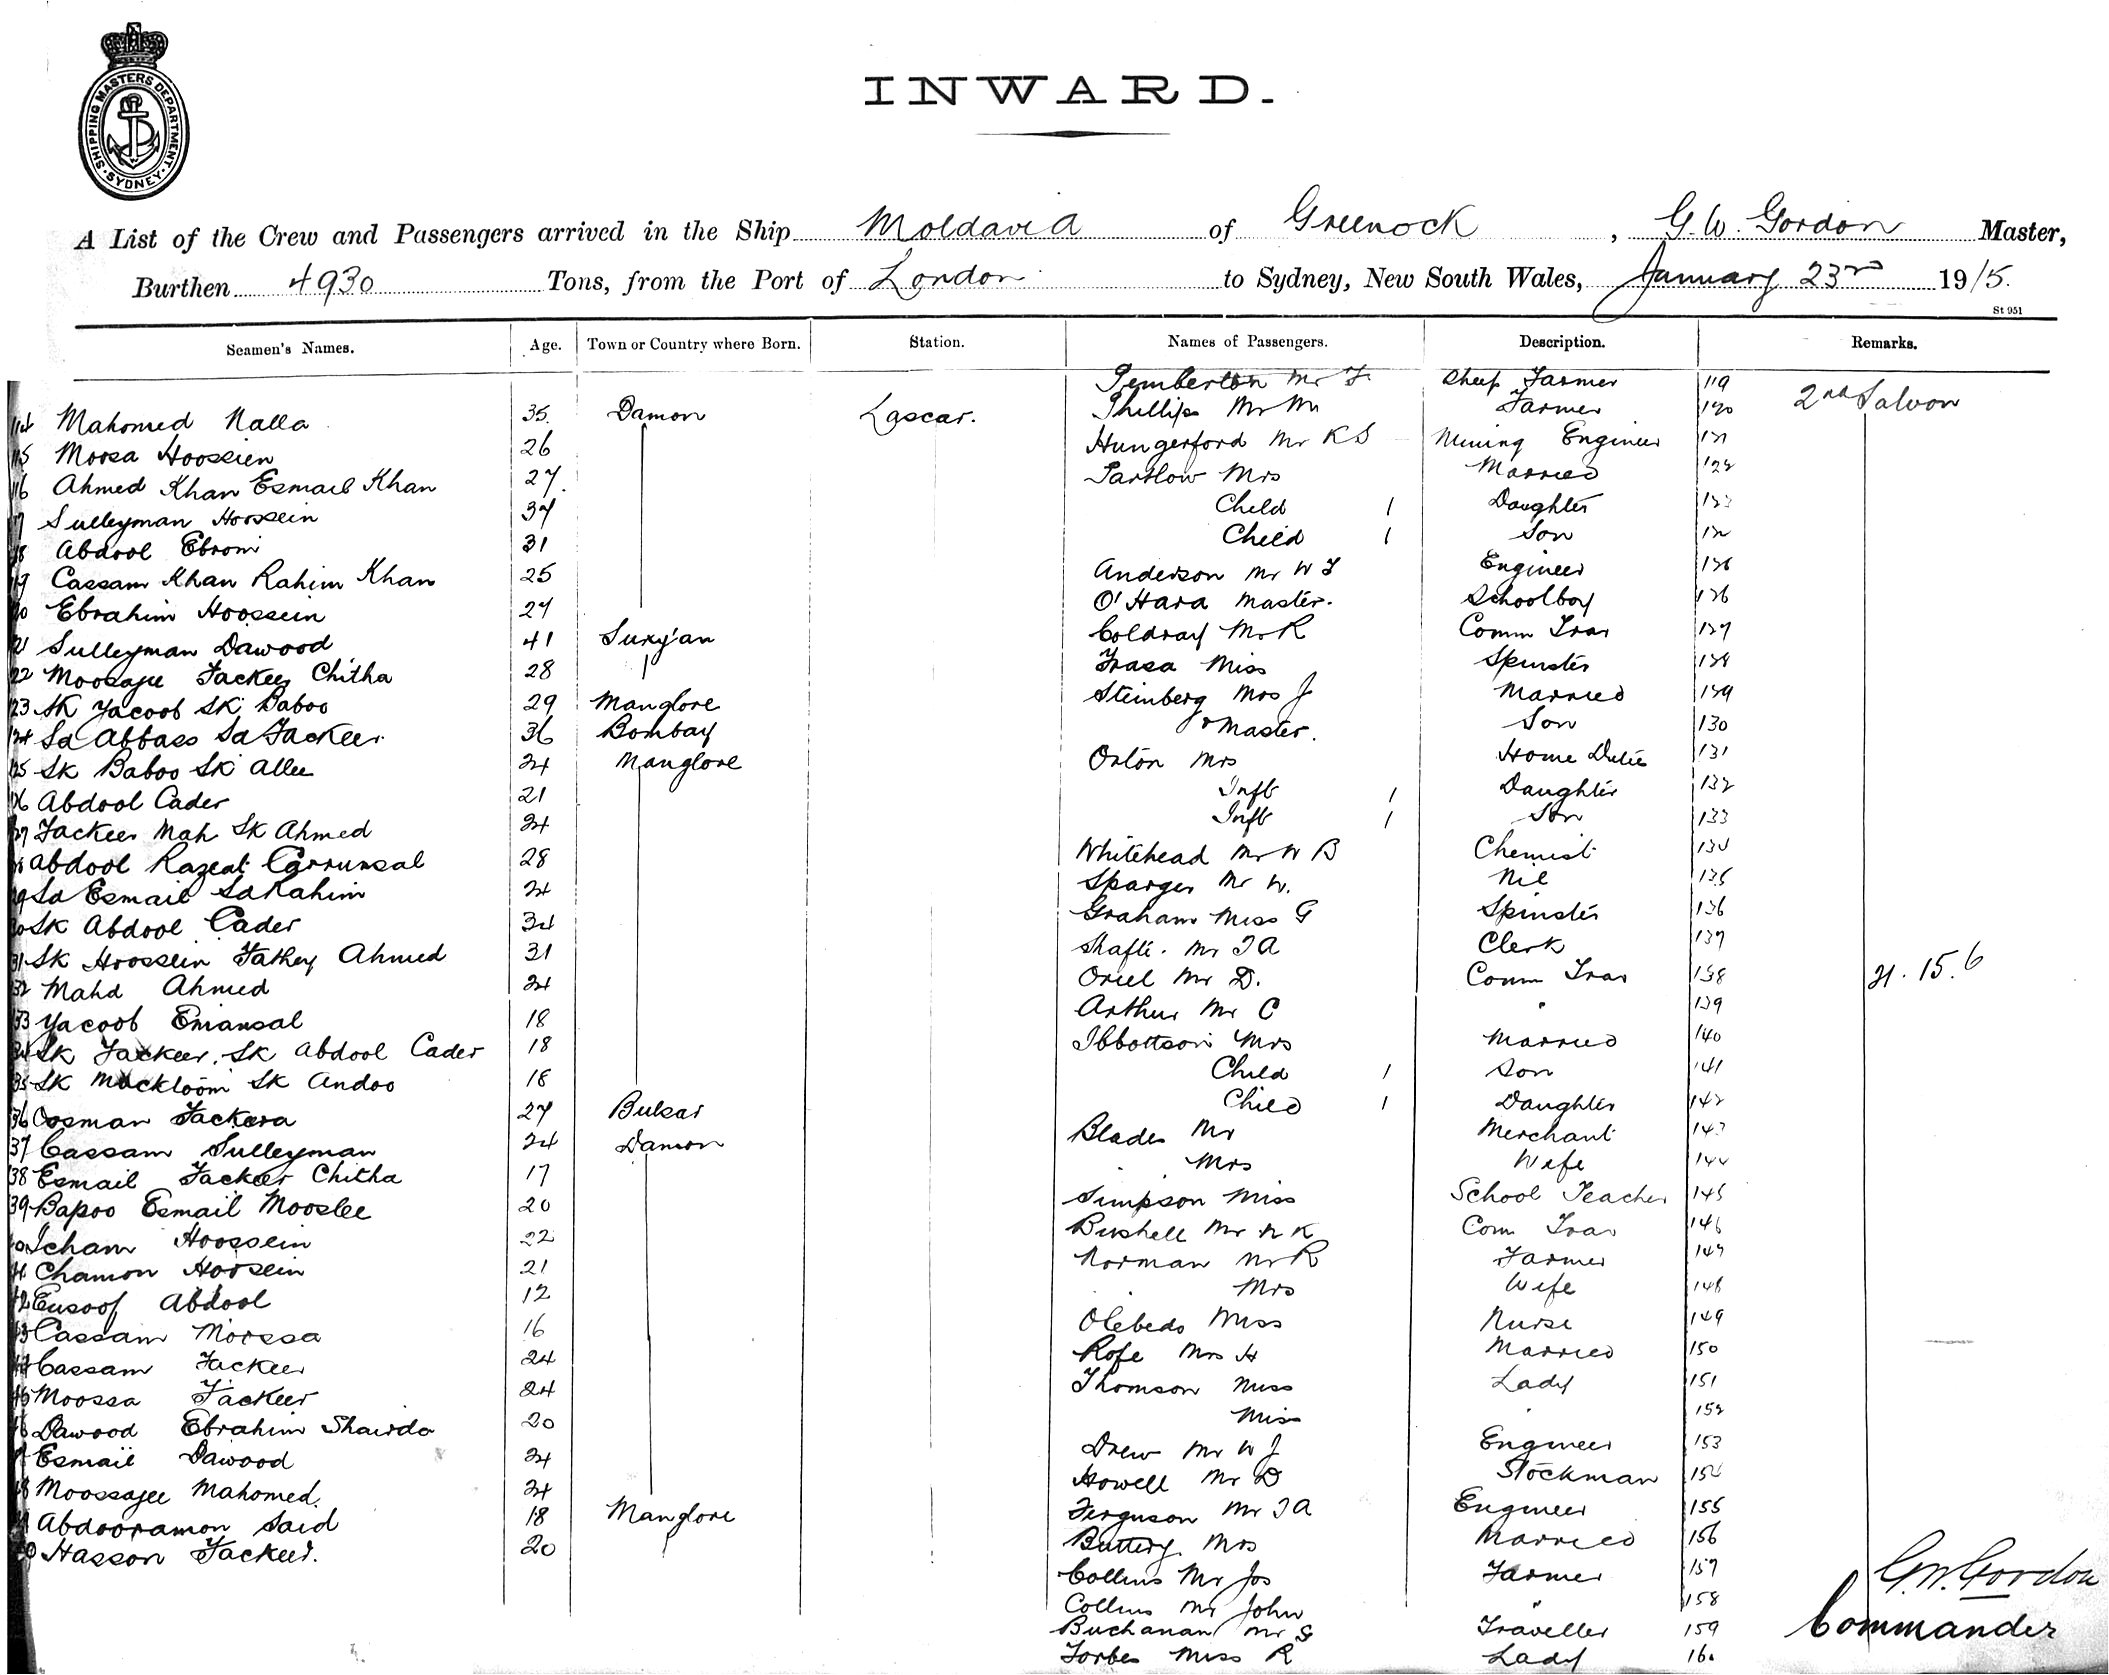 SHIPPING MASTERS DEPARTMENT · SYDNEY ·
INWARD.
A List of the Crew and Passengers arrived in the Ship Moldavia of Greenock, G. W. Gordon Master,
Burthen 4930 Tons, from the Port of London to Sydney, New South Wales, January 23rd 1915.
St 951
Seamen's Names. Age. Town or Country where Born. Station. Names of Passengers. Description. Remarks.
Pemberton Mr F. Sheep Farmer 119
114 Mahomed Nalla 35. Damon Lascar. Phillips Mr Farmer 120 2nd Saloon
115 Moosa Hoossien 26 Hungerford Mr K S Mining Engineer 121
116 Ahmed Khan Esmail Khan 27. Partlow Mrs Married 122
17 Sulleyman Hoossein 37 Child 1 Daughter 123
18 Abdool Ebrom 31 Child 1 Son 124
19 Cassam Khan Rahim Khan 25 Anderson Mr W F Engineer
20 Ebrahim Hoossein 27 O'Hara Master. Schoolboy 126
21 Sulleyman Dawood 41 Coldray Mr R Comm Trav 127
22 Moosajee Fackeer Chitha 28 Miss Spinster 128
23 Sk Yacoob Sk Baboo 29 Manglore Steinberg Mrs J Married 129
124 Sd Abbass Sd Fackeer. 36 Bombay Master. Son 130
125 Sk Baboo Sk Allee 24 Manglore Orton Mrs Home Duties 131
126 Abdool Cader 21 Inft 1 Daughter 132
27 Fackeer Mah Sk Ahmed 24 Inft 1 Son 133
Abdool Carrumsal 28 Whitehead Mr W B Chemist 134
29 Sd Esmail Sd Rahim 24 Sparger Mr W. Nil 135
30 Sk Abdool Cader 34 Graham Miss G Spinster 136
31 Sk Hoossein Fathey Ahmed 31 Mr T A Clerk 137
132 Mahd Ahmed 24 Oriel Mr D. Comm Trav 138 21. 15. 6
33 Yacoob Emamsal 18 Arthur Mr C " 139
34 Sk Fackeer. Sk Abdool Cader 18 Ibbottson Mrs Married 140
35 Sk Mackloom Sk Andoo 18 Child 1 Son 141
36 Oosman Fackera 27 Bulsar Child 1 Daughter 142
37 Cassam Sulleyman 24 Damon Blades Mr Merchant 143
38 Esmail Fackeer Chitha 17 Mrs Wife 144
39 Bapoo Esmail Mooslee 20 Simpson Miss School Teacher 145
Icham Hoossein 22 Bushell Mr N K Com Trav 146
41 Chamon Hoosein 21 Norman Mr R Farmer 147
42 Eusoof Abdool 12 Mrs Wife 148
43 Cassam Moossa 16 Miss Nurse 149
44 Cassam Fackeer 24 Rofe Mrs H Married 150
45 Moossa Fackeer 24 Thomson Miss Lady 151
46 Dawood Ebrahim 20 Miss " 152
Esmail Dawood 24 Drew Mr W J Engineer 153
48 Moossajee Mahomed. 24 Howell Mr D Stockman 154
Abdooramon Said 18 Manglore Ferguson Mr T A Engineer 155
Hasson Fackeer. 20 Buttery Mrs Married 156
Collins Mr Jos Farmer 157 G. W. Gordon
Collins Mr John " 158
Buchanan Mr G Traveller 159 Commander
Forbes Miss R Lady 160